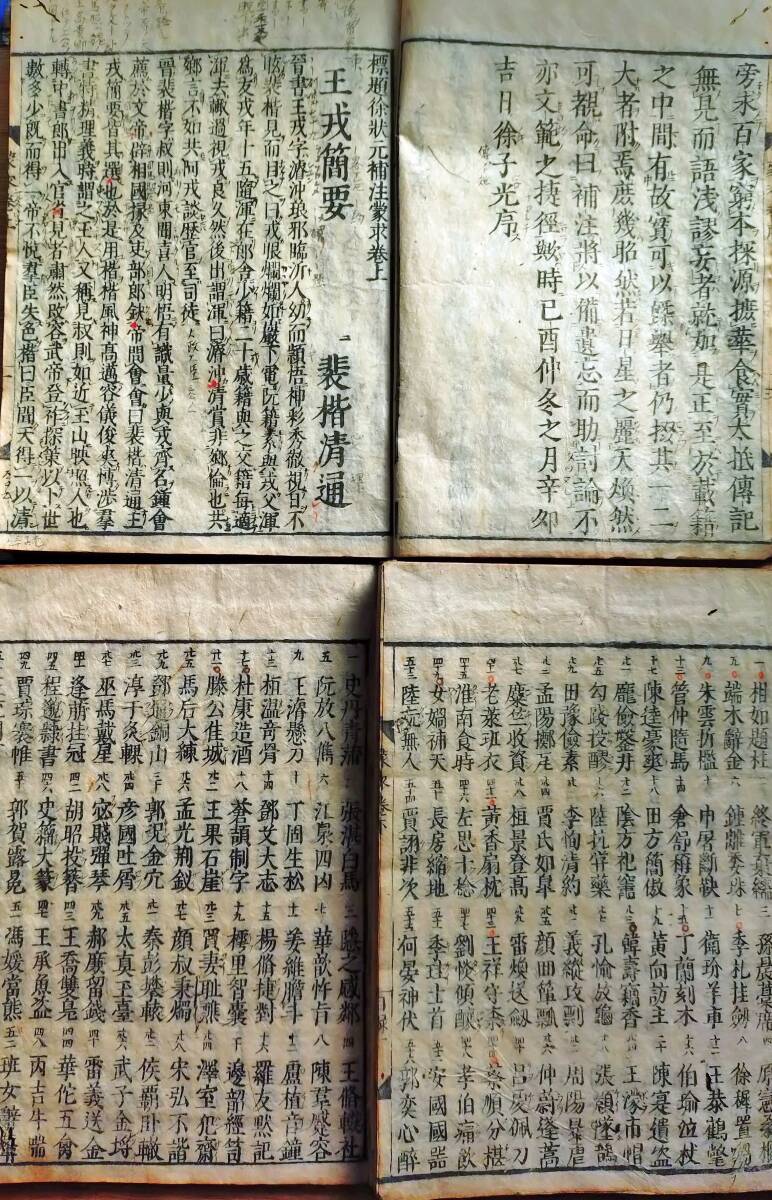 旁求百家窮本探源摭華食實太抵傳記
無見而語淺謬妄者就加是正至於載籍
之中間有故實可以槩舉者仍掇其一二
大者附焉庶幾昭然若日星之麗天煥然
可覩命曰補注將以備遺忘而助討論不
亦文範之捷徑歟時己酉仲冬之月辛卯
吉日徐子光序
標題徐狀元補注蒙求卷上
王戎簡要 一 裴楷清通
晉書王戎字濬沖琅邪臨沂人幼而穎悟神彩秀徹視日不
眩裴楷見而目之曰戎眼爛爛如巖下電阮籍素與戎父渾
為友戎年十五隨渾在郎舍少籍二十歲籍與之交籍每適
渾去輒過視戎良久然後出謂渾曰濬沖清賞非卿倫也共
卿言不如共阿戎談歷官至司徒
晉裴楷字叔則河東聞喜人明悟有識量少與戎齊名鍾會
薦於文帝辟相國掾及吏部郎缺帝問會會曰裴楷清通王
戎簡要皆其選也於是用楷楷風神高邁容儀俊爽博涉羣
書特精理義時謂之王人又稱見叔則如近玉山映照人也
轉中書郎出入官省見者肅然改容武帝登祚探策以卜世
數多少既而得一帝不悅羣臣失色楷曰臣聞天得一以清
一 相如題柱 二 終軍棄繻 三 孫晨藁席 四 原憲桑樞
五 端木辭金 六 鍾離委珠 七 季札挂劔 八 徐穉置芻
九 朱雲折檻 十 申屠斷鞅 十一 衛玠羊車 十二 王恭鶴氅
十三 管仲隨馬 十四 倉舒稱象 十五 丁蘭刻木 十六 伯瑜泣杖
十七 陳逵豪爽 十八 田方簡傲 十九 黃向訪主 二十 陳寔遺盜
龐儉鑿井 陰方祀竈 韓壽竊香 王濛市帽
勾踐投醪 陸抗嘗藥 孔愉放龜 張顥墜鵲
田豫儉素 李恂清約 義縱攻剽 周陽暴虐
孟陽擲瓦 賈氏如皐 顏回簞瓢 仲蔚蓬蒿
麋竺收資 桓景登高 雷煥送劔 呂虔佩刀
老萊班衣 黃香扇枕 王祥守柰 蔡順分椹
淮南食時 左思十稔 劉惔傾釀 孝伯痛飲
女媧補天 長房縮地 季珪士首 安國國器
陸玩無人 賈詡非次 何晏神伏 郭奕心醉
一 史丹青蒲 二 張湛白馬 三 隱之感鄰 四 王脩輟社
五 阮放八儁 六 江泉四凶 七 華歆忤旨 八 陳羣蹙容
九 王濬懸刀 十 丁固生松 十一 姜維膽斗 十二 盧植音鐘
十三 桓溫奇骨 十四 鄧艾大志 十五 楊脩捷對 十六 羅友默記
十七 杜康造酒 十八 蒼頡制字 十九 樗里智囊 二十 邊韶經笥
滕公佳城 王果石崖 買妻耻醮 澤室犯齋
馬后大練 孟光荊釵 顏叔秉燭 宋弘不諧
鄧通銅山 郭況金穴 秦彭攀轅 侯霸臥轍
淳于炙輠 彥國吐屑 太真玉臺 武子金埒
巫馬戴星 宓賤彈琴 郝廉留錢 雷義送金
逢萌挂冠 胡昭投簪 王喬雙鳧 華佗五禽
程邈隸書 史籀大篆 王承魚盜 丙吉牛喘
賈琮褰帷 郭賀露冕 馮媛當熊 班女辭輦